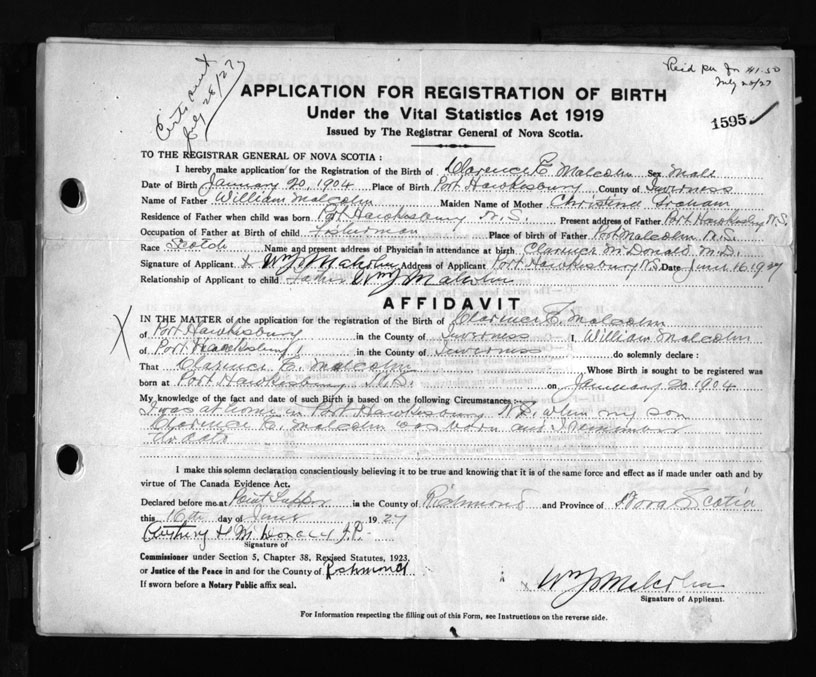 Certs sent July 28/27
July 28/27
APPLICATION FOR REGISTRATION OF BIRTH
Under the Vital Statistics Act 1919
1595
Issued by The Registrar General of Nova Scotia.
TO THE REGISTRAR GENERAL OF NOVA SCOTIA :
I hereby make application for the Registration of the Birth of Clarence E Malcolm Sex Male
Date of Birth January 20, 1904 Place of Birth Port Hawkesbury County of Inverness
Name of Father William Malcolm Maiden Name of Mother Christena Graham
Residence of Father when child was born Port Hawkesbury N.S. Present address of Father Port Hawkesbury N.S.
Occupation of Father at Birth of child Fisherman Place of birth of Father Port Malcolm N.S.
Race Scotch Name and present address of Physician in attendance at birth Clarence McDonald M.D.
Signature of Applicant x Wm J Malcolm Address of Applicant Port Hawkesbury N.S. Date June 16, 1927
Relationship of Applicant to child Father Wm J Malcolm
AFFIDAVIT
IN THE MATTER of the application for the registration of the Birth of Clarence E. Malcolm
of Port Hawkesbury in the County of Inverness I, William Malcolm
of Port Hawkesbury in the County of Inverness do solemnly declare :
That Clarence E. Malcolm Whose Birth is sought to be registered was
born at Port Hawkesbury N.S. on January 20 1904
My knowledge of the fact and date of such Birth is based on the following Circumstances :-
I was at home in Port Hawkesbury N.S. when my son
Clarence E. Malcolm was born and I remember
the date
I make this solemn declaration conscientiously believing it to be true and knowing that it is of the same force and effect as if made under oath and by
virtue of The Canada Evidence Act.
Declared before me at Point Tupper in the County of Richmond and Province of Nova Scotia
this 16th day of June 1927
H McDonald J.P.
Signature of
Commissioner under Section 5, Chapter 38, Revised Statutes, 1923,
or Justice of the Peace in and for the County of Richmond
If sworn before a Notary Public affix seal.
x Wm J Malcolm
Signature of Applicant.
For Information respecting the filling out of this Form, see Instructions on the reverse side.